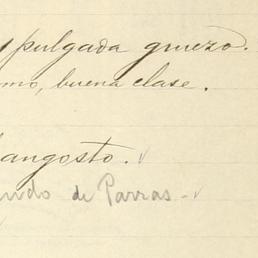 pulgada gruezo.
mo, buena clase.
angosto.
de Parras -